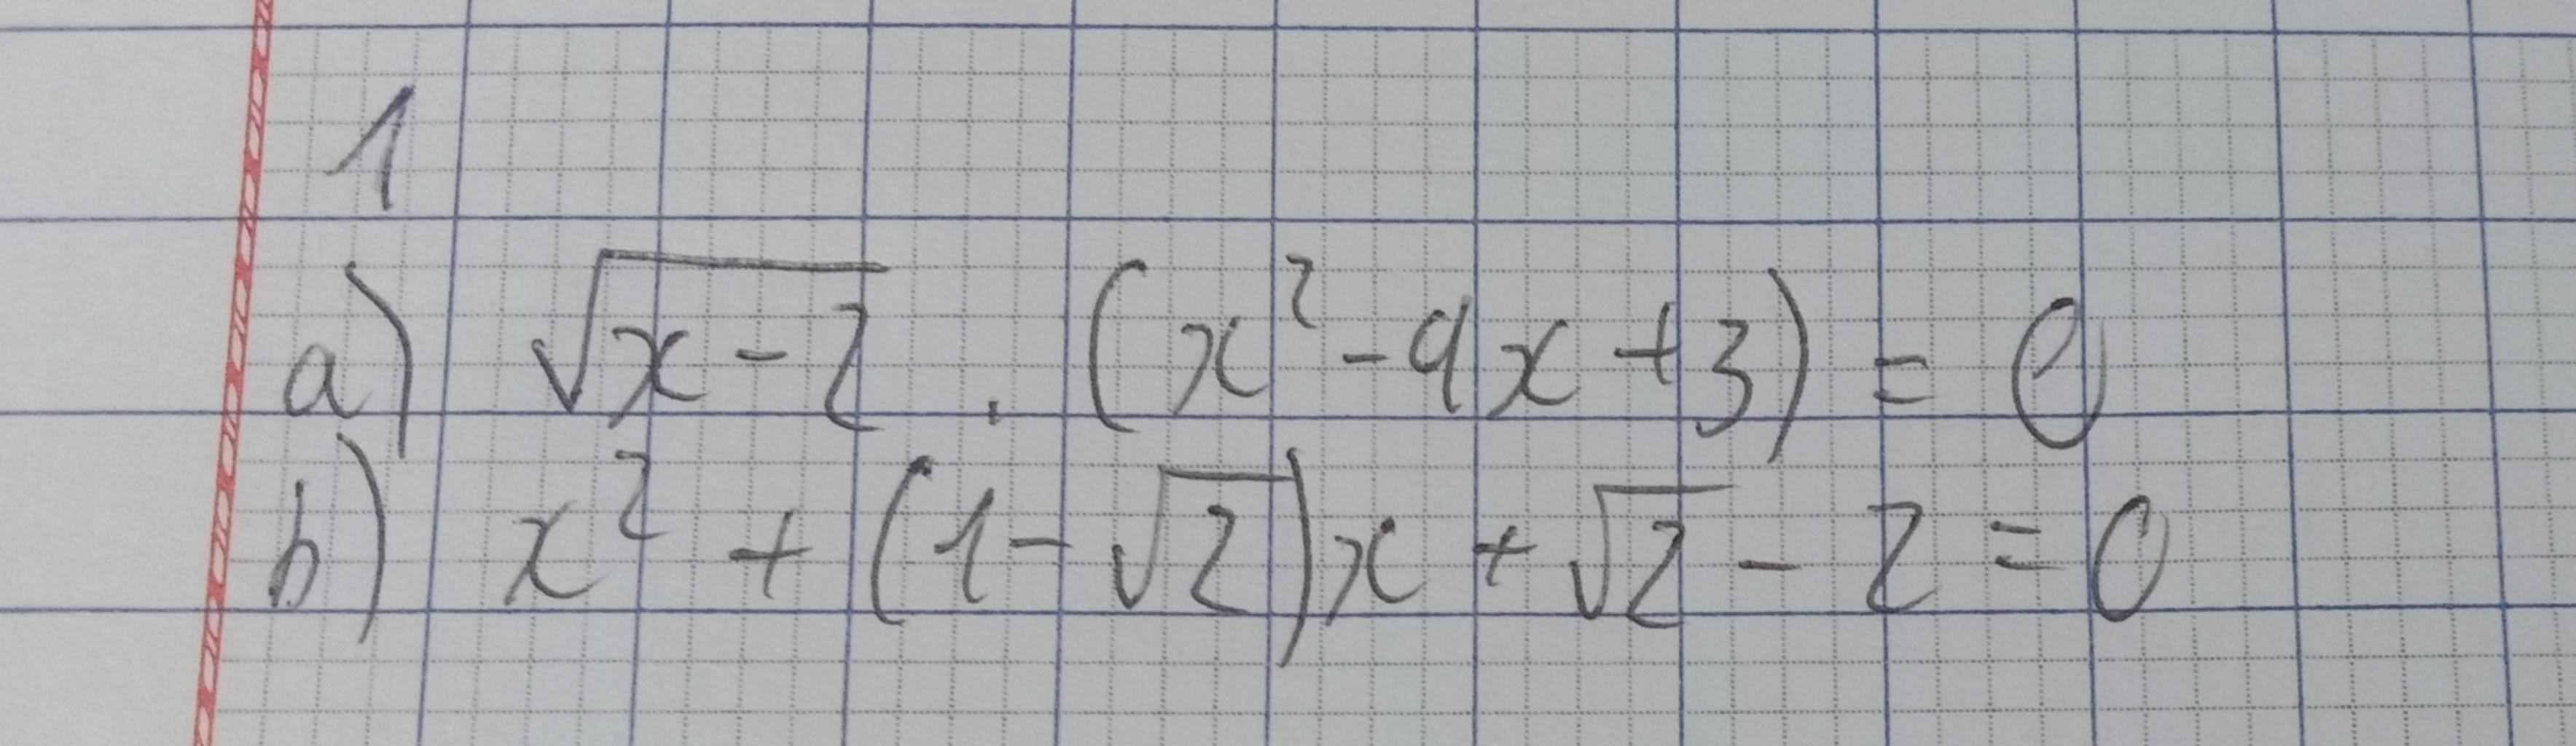 1
a) √(x-2) . (x² - 4x + 3) = 0
b) x² + (1 - √2)x + √2 - 2 = 0